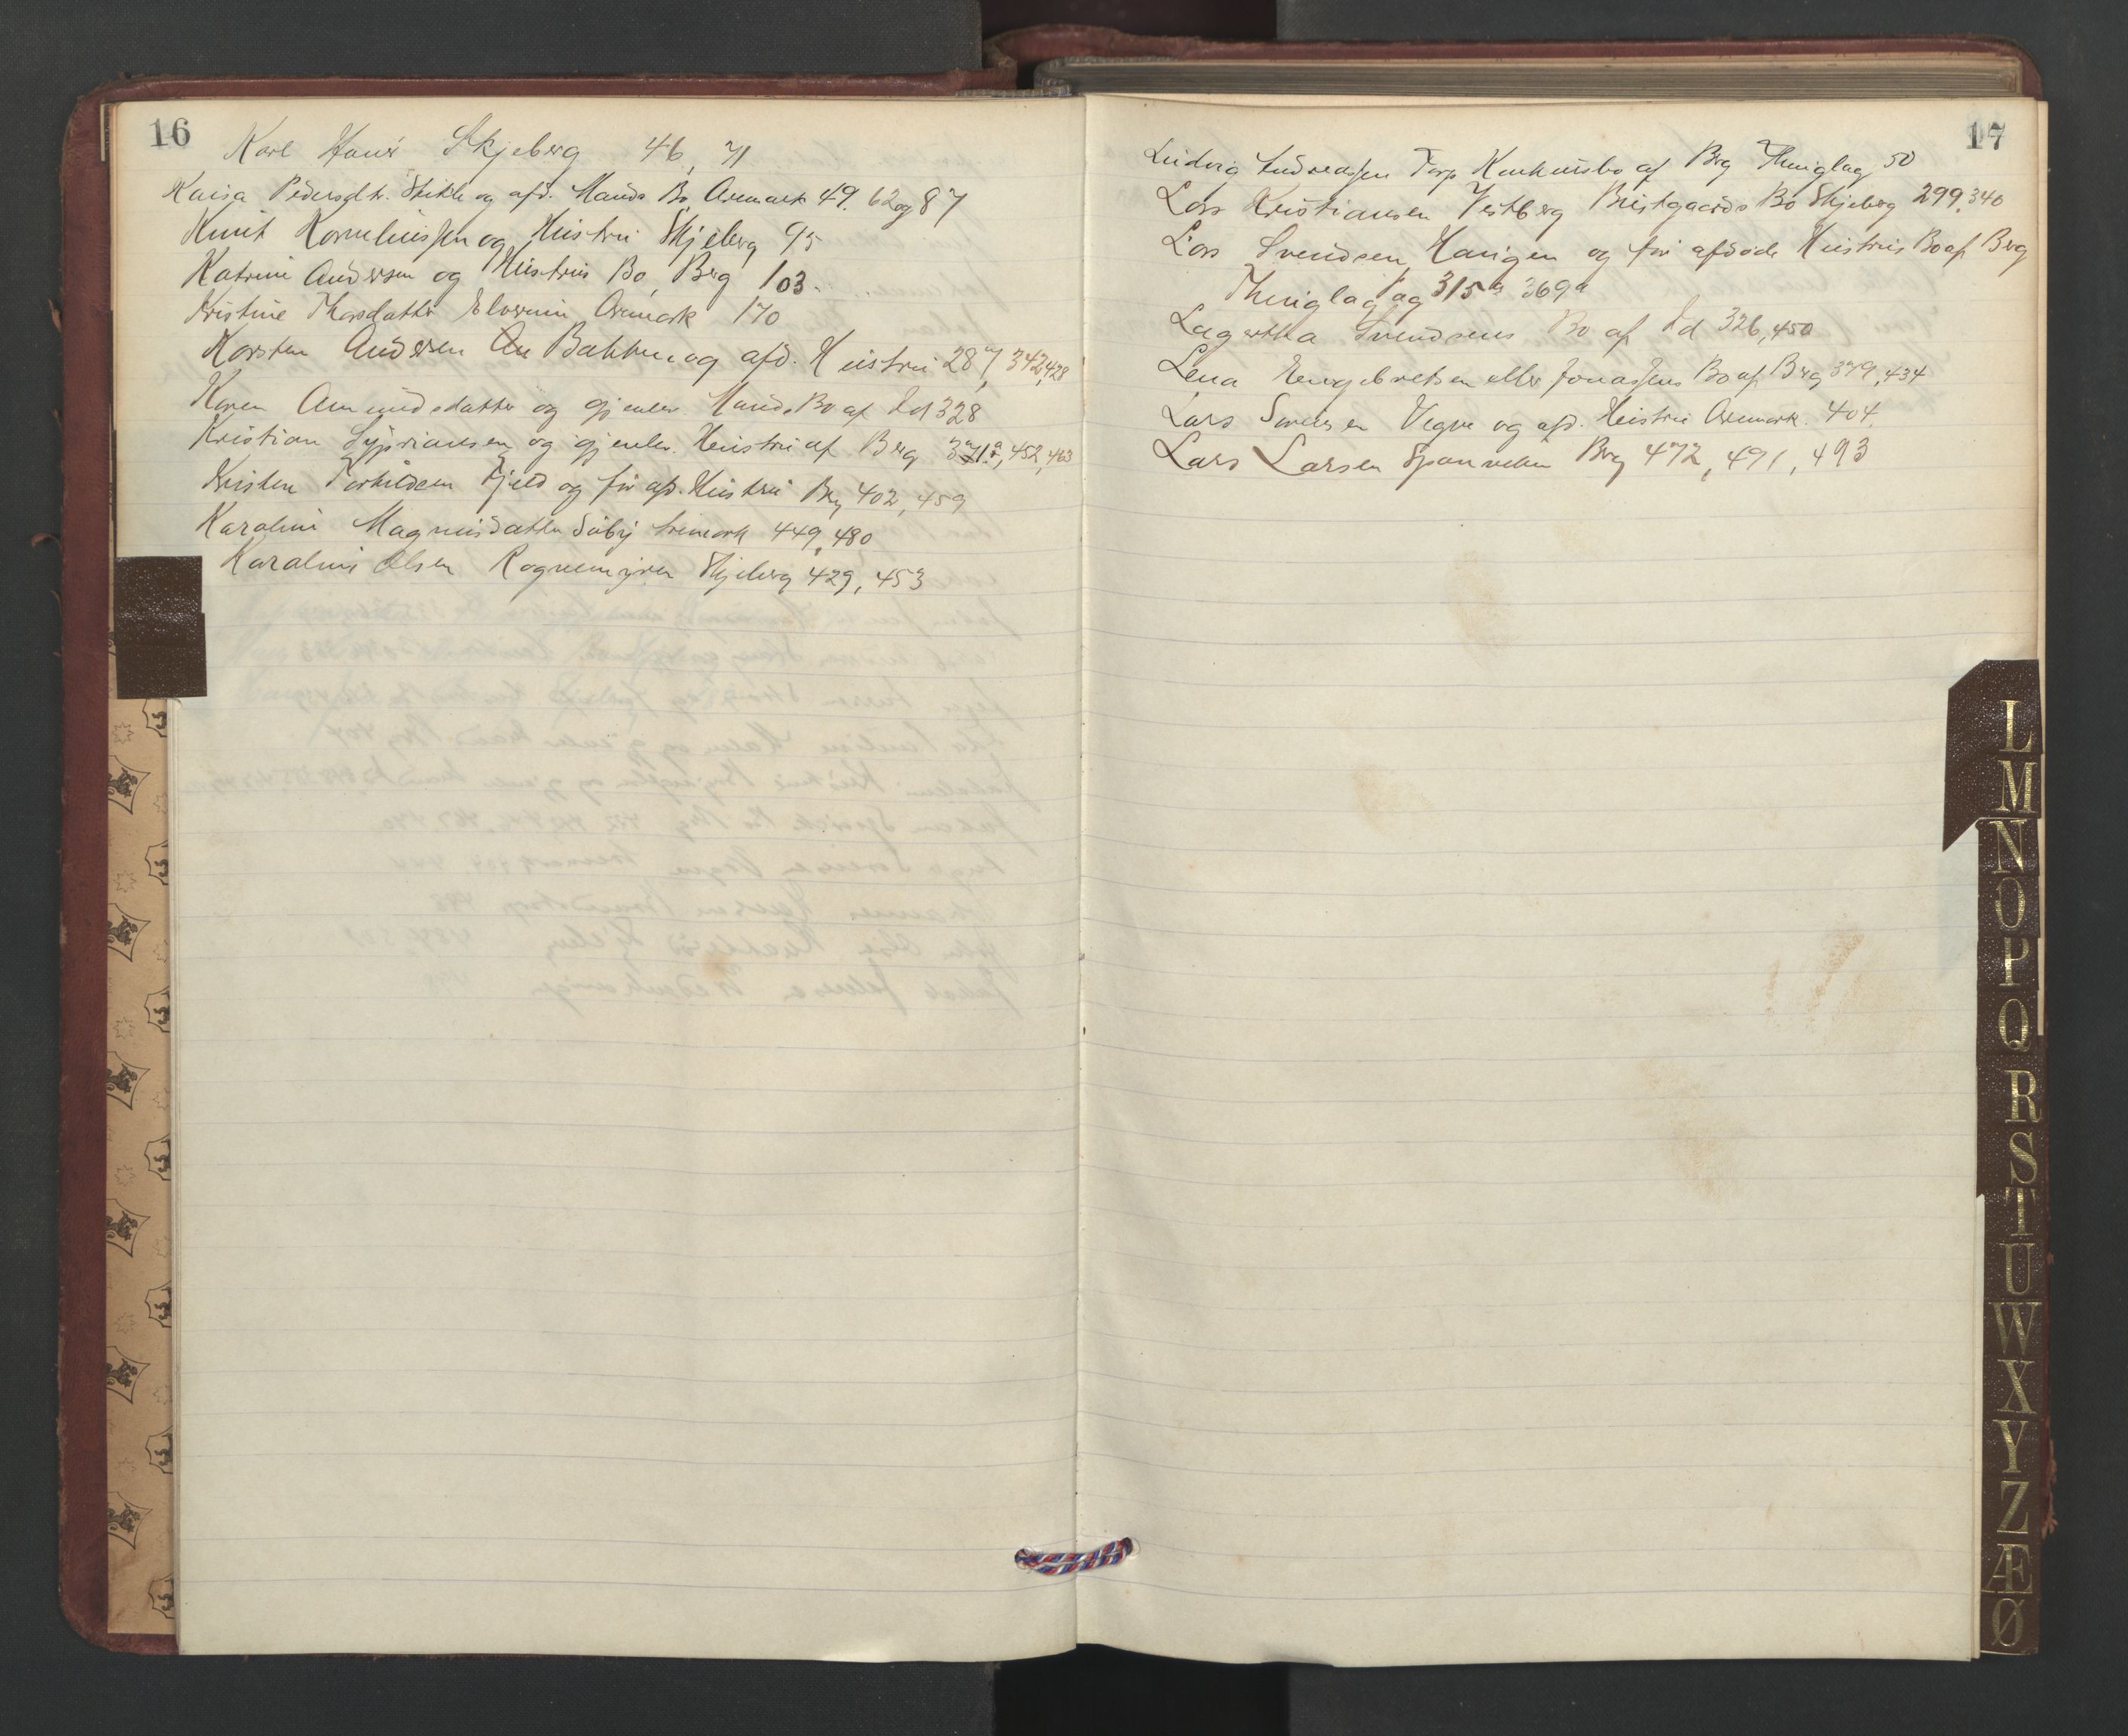 16
Karl Hauer Skjeberg 46, 71
Kaisa Pedersdtr. Stikle og afd. Mands Bo, Aremark 49. 62 og 87
Knut Korneliussen og Hustru Skjeberg 95
Katrine Andersen og Hustrus Bo, Berg 103.
Kristine Thorsdatter Elvernin Aremark 170
Karsten Andersen Bakkene og afd. Hustru 287, 342, 428
Karen Amundsdatter og gjenlev. Mands Bo af Id 328
Kristian Sypriansen og gjenlev. Hustru af Berg 371a, 452, 463
Kristen Torkildsen Fjeld og før afd. Hustru Berg 402, 459
Karoline Magnusdatter Søby Aremark 449, 480
Karoline Olsen Rognemyren Skjeberg 429, 453
17
Ludvig Andreassen Torp Konkursbo af Berg Thinglag 50
Lars Kristiansen Vestberg Brustgaards Bo Skjeberg 299, 340
Lars Svendsen Haugen og før afdøde Hustrus Bo af Berg
Thinglag og 315a 369a
Lagertha Svendsens Bo af Id 326, 450
Lena Engebretsen eller Jonassens Bo af Berg 379, 434
Lars Sørensen Vegne og afd. Hustru Aremark. 404.
Lars Larsen Sponveken Berg 472, 491, 493
L
M
N
O
P
Q
R
S
T
U
W
X
Y
Z
Æ
Ø